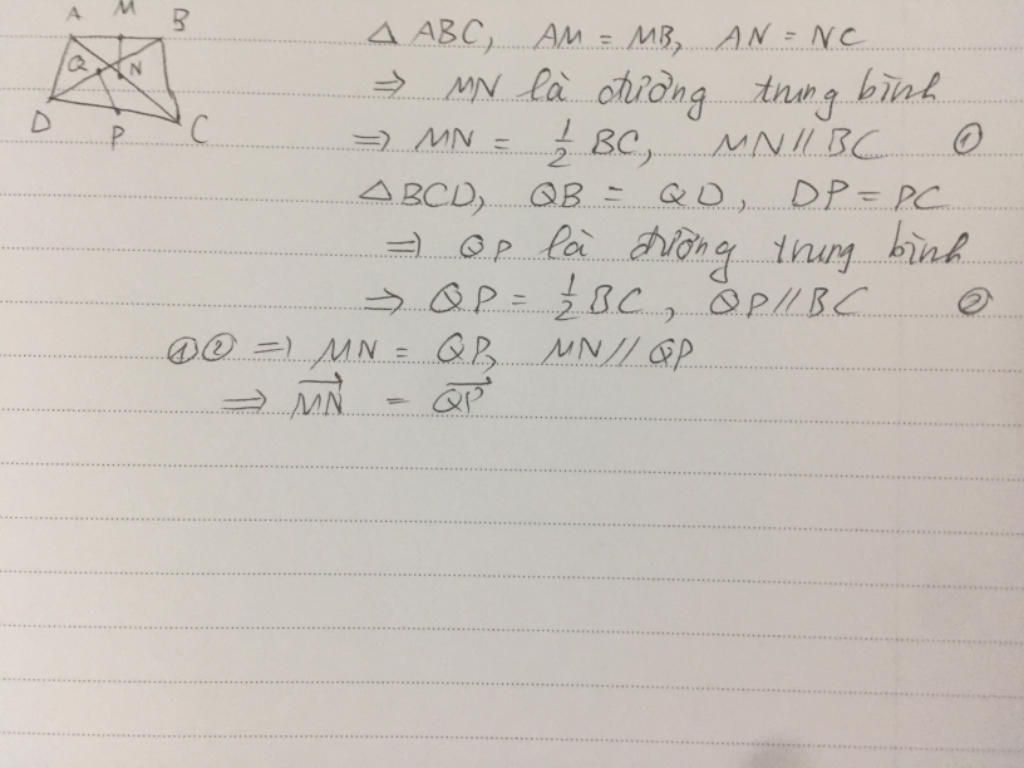 A M B
Q N
D P C
△ ABC, AM = MB, AN = NC
⇒ MN là đường trung bình
⇒ MN = 1/2 BC, MN // BC ①
△BCD, QB = QD, DP = PC
⇒ QP là đường trung bình
⇒ QP = 1/2 BC, QP // BC ②
①② ⇒ MN = QP, MN // QP
⇒ \overrightarrow{MN} = \overrightarrow{QP}